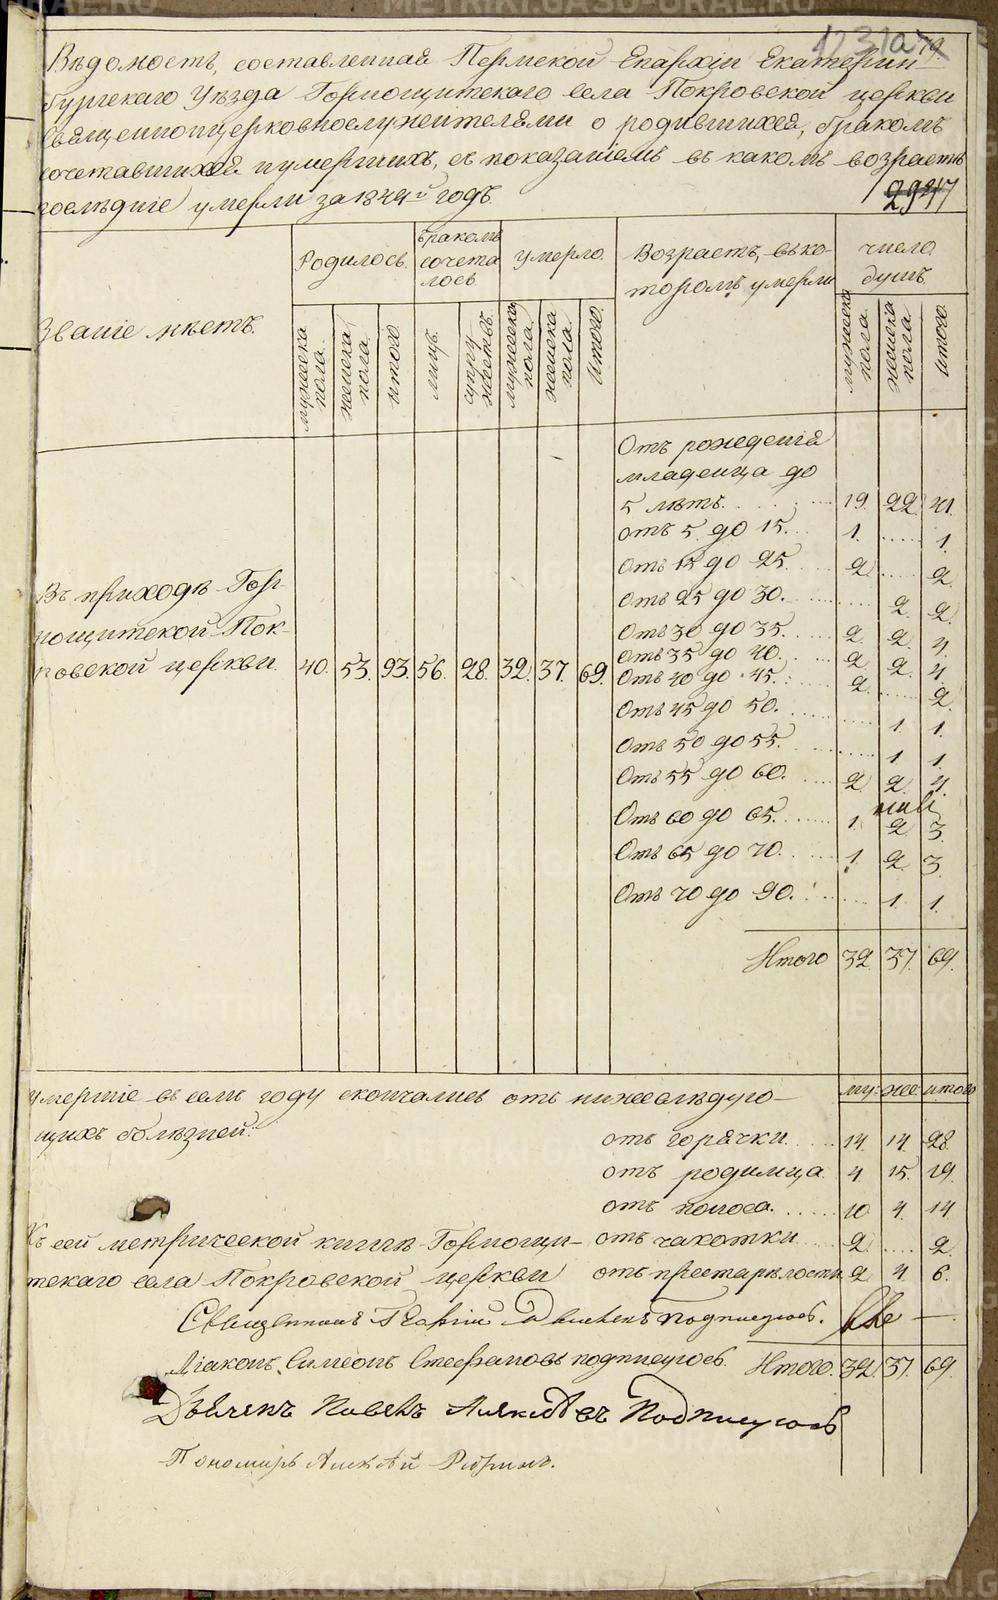 1231а 79.
Вѣдомость, составленная Пермской Епархіи Екатерин
бургскаго Уѣзда Горнощитскаго села Покровской церкви
священноцерковнослужителями о родившихся, бракомъ
сочетавшихся и умершихъ, съ показаніемъ въ какомъ возрастѣ
послѣдніе умерли за 1844й годъ.
Званіе мѣстъ.
Родилось.
бракомъ сочета лось
умерло.
Возрастъ, въ ко-
торомъ умерли
число
душъ.
мужеска пола.
женска пола.
итого
лицъ.
супружествъ.
мужеска пола.
женска пола.
Итого.
мужеска пола.
женска пола.
итого
Отъ рожденія
младенца до
5 лѣтъ. 19. 22. 41.
отъ 5 до 15. 1. 1.
Отъ 15 до 25. 2. 2.
Отъ 25 до 30. 2. 2.
Отъ 30 до 35. 2. 2. 4.
Отъ 35 до 40. 2. 2. 4.
Отъ 40 до 45. 2. 2.
Отъ 45 до 50. 1 1.
Отъ 50 до 55. 1 1.
Отъ 55 до 60. 2. 2. 4.
Отъ 60 до 65. 1. 2. 3.
Отъ 65 до 70. 1. 2. 3.
Отъ 70 до 90. 1. 1.
Итого 32. 37. 69.
Въ приходѣ Гор-
нощитской Пок-
ровской церкви. 40. 53. 93. 56. 28. 32. 37. 69.
умершіе въ семъ году скончались отъ нижеслѣдую-
щихъ болѣзней:
му: же: итого
отъ горячки 14. 14. 28.
отъ родимца 4. 15. 19.
отъ поноса. 10. 4. 14.
отъ чахотки 2. 2.
отъ престарѣлости 2. 4. 6.
Итого. 32. 37. 69.
Къ сей метрической книгѣ Горнощи-
тскаго села Покровской церкви
Священникъ Георгій подписуюсь.
Діаконъ Симеонъ Стефановъ подписуюсь.
Дьячекъ Павелъ Подписуюсь
Пономарь Алексѣй
METRIKI.GASO-URAL.RU